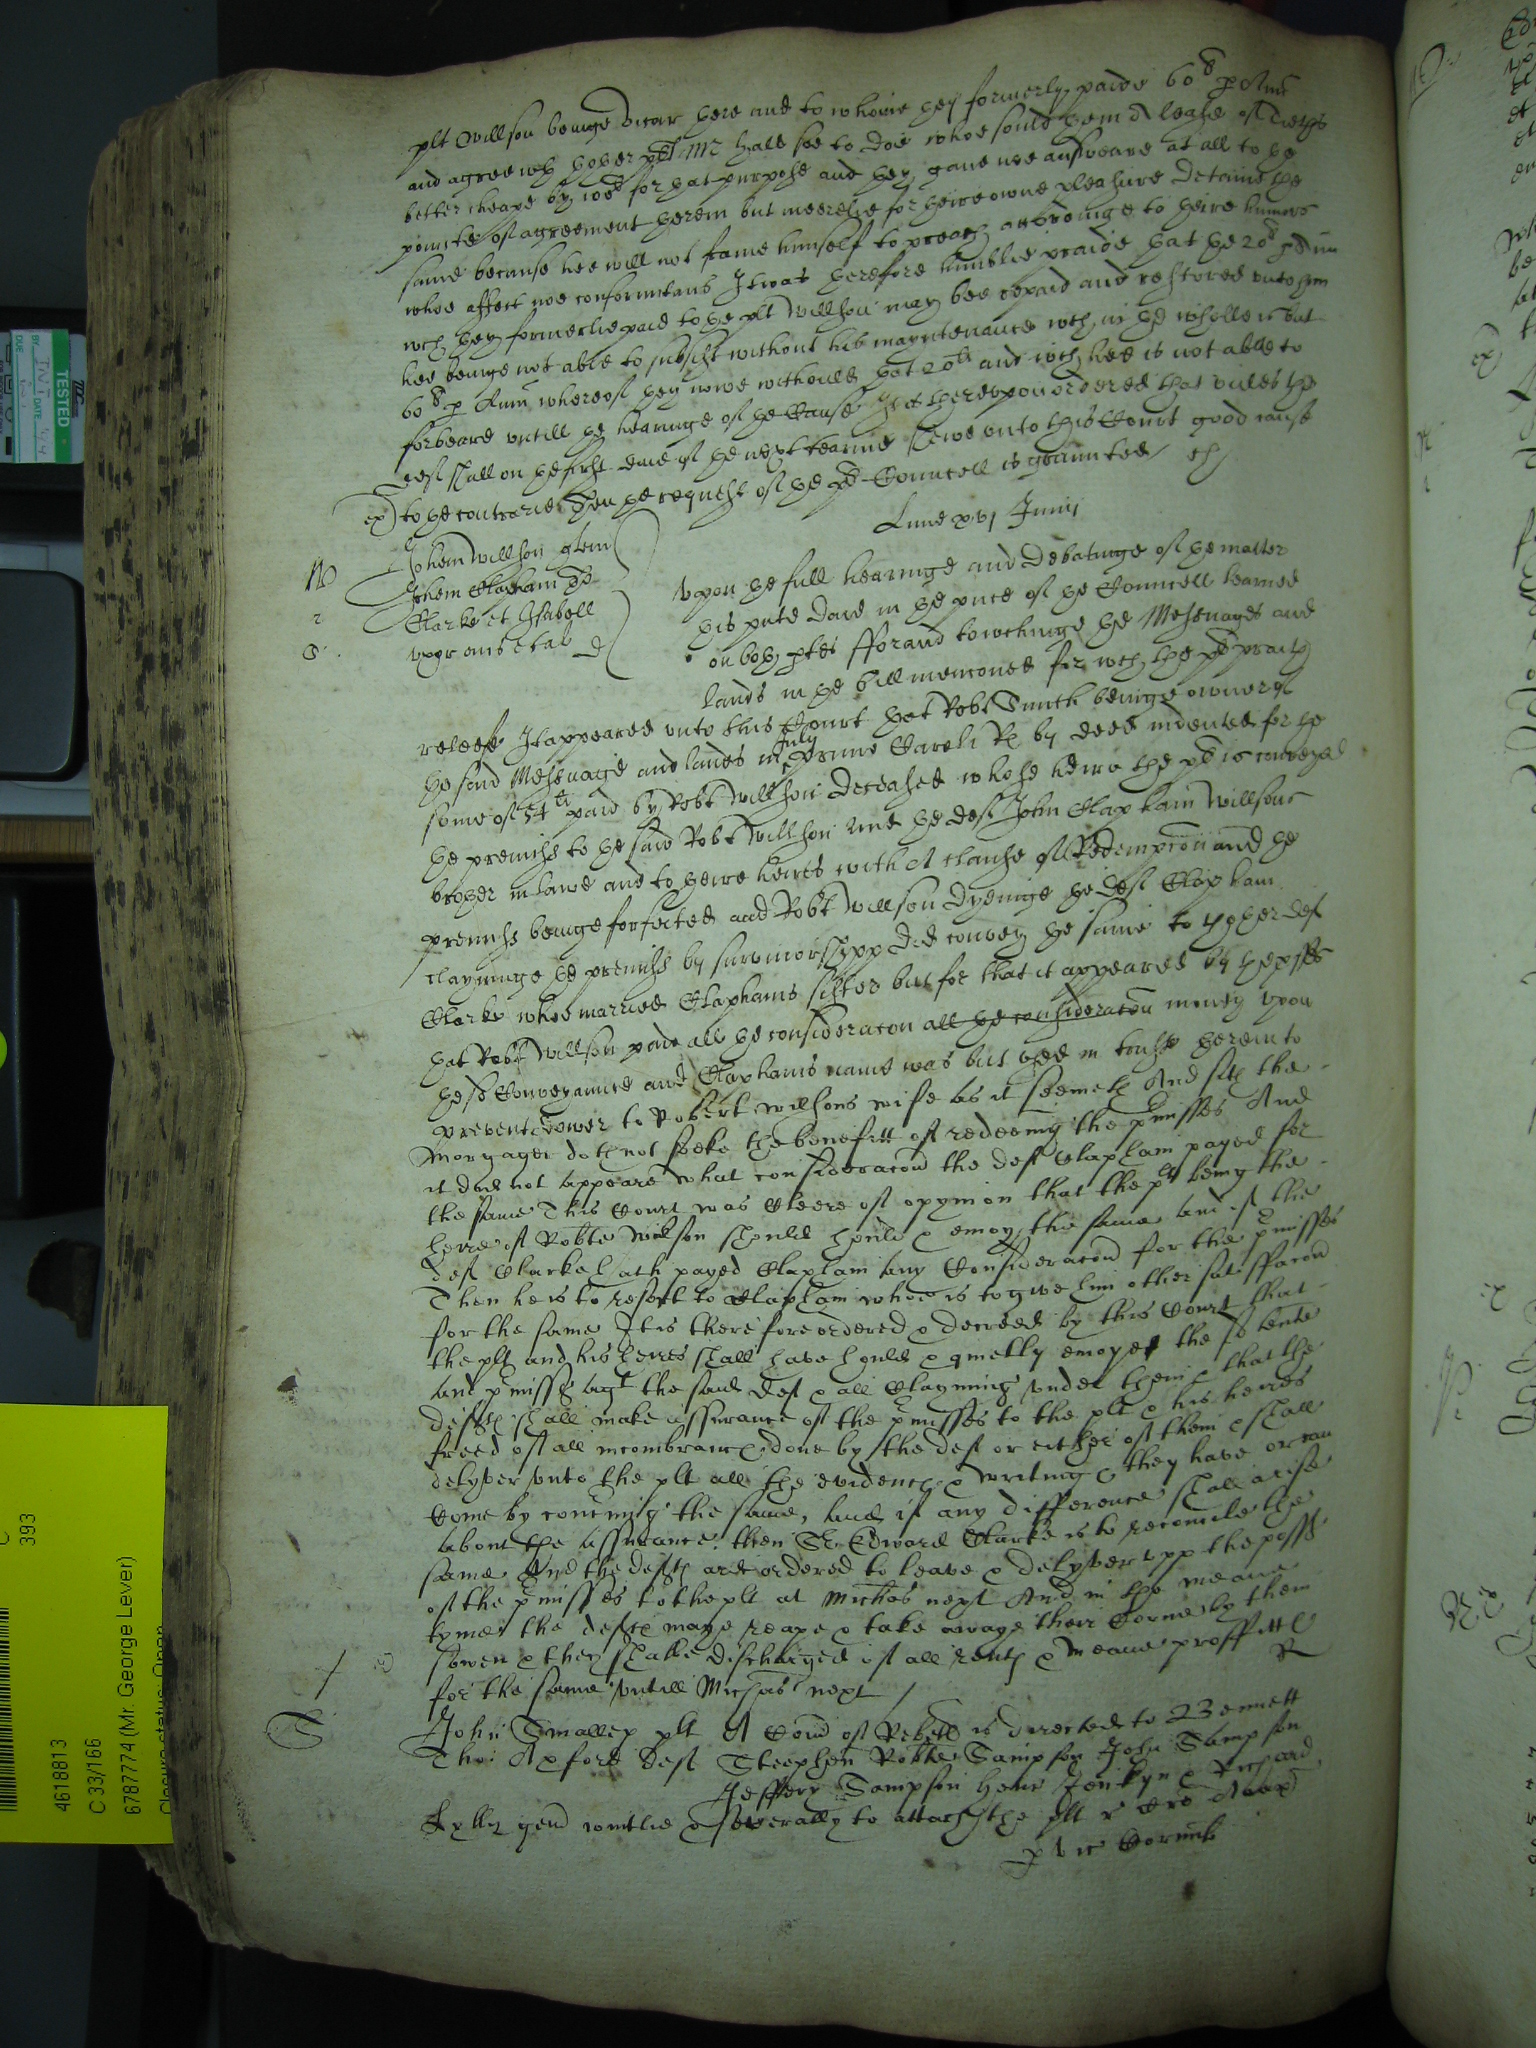 plt Willson beinge vicar there and to whome they formerly paide 60s p Ann
and agree wth thother plt Mr Hale soe to doe whoe sould them A lease of Tieths
better cheape by for that purpose and they gave noe answeare at all to the
pointe of agreement therein but meerelie for theire owne pleasure detaine the
same because hee will not frame himself to preach to theire humors
whoe affect noe conformitans It was therefore humblie praide that the 20s
wch they formerlie paid to the plt Willson may bee repaid and restored unto him
hee beinge not able to subsist without his mayntenance wch in the wholle is but
60s p Ann whereof they nowe withould that 20s and wch hee is not able to
forbeare untill the hearinge of the Cause It is thereupon ordered that unles the
def shall on the first daie of the next tearme shewe unto this Court good cause
ex) to the contrarie then the request of the sd Councell is graunted / ex)
Lune xvj Junij
W
John Willson plt
John Clapham
Clarke et Isabell
uxor eius et al d
Upon the full hearinge and debatinge of the matter
this pnte daie in the pnce of the Councell learned
on both ptes For and towchinge the Messuages and
lands in the bill mencioned for wch the plt praith
releefe It appeared unto this Court that Robt Smith beinge owner of
the said Messuage and lands in July primo Caroli Rs by deed indented for the
some of 54li paid by Robt Willson deceased whose heire the plt is conveyed
the premiss to the said Robt Willson and the def John Clapham Willsons
brother in lawe and to theire heires with A clause of Redempcon and the
premiss beinge forfeited and Robt Willson dyeinge the def Clapham
clayminge the premiss by survivorshipp did convey the same to thother def
Clarke whoe married Claphams sister but for that it appeared by the proffes
that Robt Willson paid all the consideracon all the consideracon money upon
the sd Conveyaunce and Claphams name was but used in truste therein to
prevent dower to Robert Willsons wife as it seemeth And sith the
Morgager doth not seeke the benefitt of redeeming the pmisses And
it doth not appeare what consideracon the def Clapham payed for
the same This Court was Cleere of opynion that the plt being the
heire of Robte Wilson should hould & enioy the same and if the
def Clarke hath payed Clapham any Consideracon for the pmisses
Then he is to resort to Clapham who is to give him other satisffacon
for the same It is therefore ordered & decreed by this Court that
the plt and his heires shall have hould & quietly enioye the sd lande
and pmisses agt the said def & all Clayming under them & that the
defts shall make assurance of the pmisses to the plt & his heires
freed of all incombrances done by the def or either of them & shall
delyver unto the plt all the evidences & writings they have or can
Come by concrning the same, And if any difference shall arise
about the assurance then Sr Edward Clarke is to reconcile the
same And the defts are ordered to leave & delyver upp the posses
of the pmisses to the plt at Michas next And in the meane
tyme the defts maye reape & take awaye their Corne by them
sowen & they shalbe discharged of all rents & meane proffitts
for the same untill Michas next /
R
S
John Smalley plt
Tho: Axford def
A Com of Rebell is directed to Bennett
Steephen Robte Sampson John Sampson
Jeffery Sampson Henr Jenkyn & Richard
gen iointlie & severally to attach the plt
vic Cornub
TESTED
DATE
DUE
C
393
4618813
C 33/166
6787774 (Mr. George Lever)
Closure status: Open